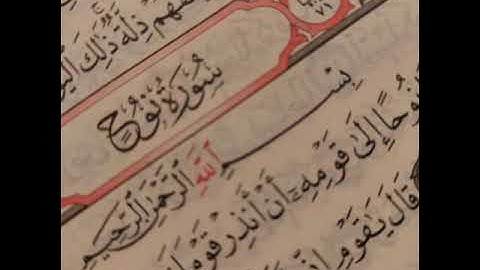 ذِلَّةٌ ذَٰلِكَ
٧١
سُورَةُ نُوحٍ
بِسْمِ ٱللَّهِ ٱلرَّحْمَٰنِ ٱلرَّحِيمِ
نُوحًا إِلَىٰ قَوْمِهِۦٓ أَنْ أَنذِرْ قَوْمَ
قَالَ يَٰقَوْمِ